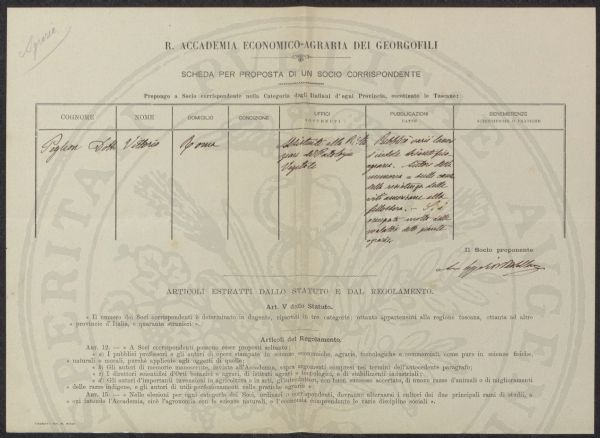 Agraria
R. ACCADEMIA ECONOMICO-AGRARIA DEI GEORGOFILI
SCHEDA PER PROPOSTA DI UN SOCIO CORRISPONDENTE
Propongo a Socio corrispondente nella Categoria degli Italiani d'ogni Provincia, eccettuate le Toscane:
COGNOME
NOME
DOMICILIO
CONDIZIONE
UFFICI
SOSTENUTI
PUBBLICAZIONI
FATTE
BENEMERENZE
SCIENTIFICHE O PRATICHE
Peglion Dott. Vittorio
Roma
Assistente alla R. Sta
zione di Patologia
Vegetale
Pubblicò varii lavori
d'indole scientifico
agraria. Autore della
memoria sulle cause
della resistenza delle
viti americane alla
fillossera. Si è
occupato molto delle
malattie delle piante
agrarie
Il Socio proponente
ARTICOLI ESTRATTI DALLO STATUTO E DAL REGOLAMENTO.
Art. V dello Statuto.
« Il numero dei Soci corrispondenti è determinato in dugento, ripartiti in tre categorie: ottanta appartenenti alla regione toscana, ottanta ad altre
provincie d'Italia, e quaranta stranieri ».
Articoli del Regolamento.
ART. 12. — « A Soci corrispondenti possono esser proposti soltanto:
« a) I pubblici professori e gli autori di opere stampate in scienze economiche, agrarie, tecnologiche e commerciali, come pure in scienze fisiche,
naturali e morali, purchè applicate agli oggetti di quelle;
« b) Gli autori di memorie manoscritte, inviate all'Accademia, sopra argomenti compresi nei termini dell'antecedente paragrafo;
« c) I direttori scientifici d'Orti botanici e agrari, di istituti agrari e tecnologici, e di stabilimenti industriali;
« d) Gli autori d'importanti invenzioni in agricoltura o in arti, gl'introduttori, con buon successo accertato, di nuove razze d'animali o di miglioramenti
delle razze indigene, e gli autori di utili perfezionamenti nelle pratiche agrarie ».
ART. 15. — « Nelle elezioni per ogni categoria dei Soci, ordinari o corrispondenti, dovranno alternarsi i cultori dei due principali rami di studii, a
cui intende l'Accademia, cioè l'agronomia con le scienze naturali, e l'economia comprendente le varie discipline sociali ».